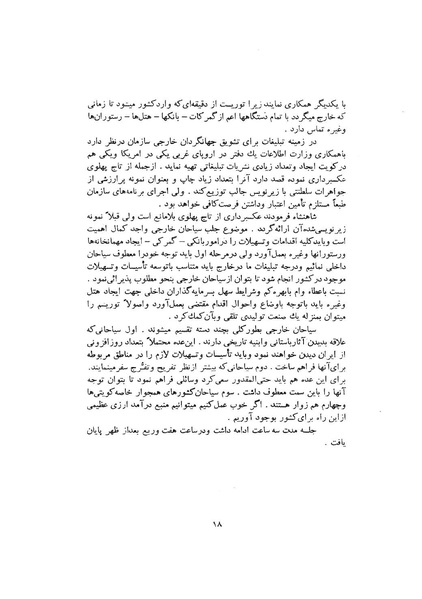 با یکدیگر همکاری نمایند زیرا توریست از دقیقه‌ای که واردکشور میشود تا زمانی
که خارج میگردد با تمام دستگاهها اعم از گمرکات – بانکها – هتل‌ها – رستوران‌ها
وغیره تماس دارد .
در زمینه تبلیغات برای تشویق جهانگردان خارجی سازمان درنظر دارد
باهمکاری وزارت اطلاعات یك دفتر در اروپای غربی یکی در امریکا ویکی هم
درکویت ایجاد وتعداد زیادی نشریات تبلیغاتی تهیه نماید . ازجمله از تاج پهلوی
عکسبرداری نموده قصد دارد آنرا بتعداد زیاد چاپ و بعنوان نمونه پرارزشی از
جواهرات سلطنتی با زیرنویس جالب توزیع کند . ولی اجرای برنامه‌های سازمان
طبعاً مستلزم تأمین اعتبار وداشتن فرصت کافی خواهد بود .
شاهنشاه فرمودند عکسبرداری از تاج پهلوی بلامانع است ولی قبلاً نمونه
زیرنویسی‌شده‌آن ارائه گردد . موضوع جلب سیاحان خارجی واجد کمال اهمیت
است وبایدکلیه اقدامات وتسهیلات را درامور بانکی – گمرکی – ایجاد مهمانخانه‌ها
ورستورانها وغیره بعمل آورد ولی درمرحله اول باید توجه خودرا معطوف سیاحان
داخلی نمائیم ودرجه تبلیغات ما درخارج باید متناسب باتوسعه تأسیسات وتسهیلات
موجود در کشور انجام شود تا بتوان از سیاحان خارجی بنحو مطلوب پذیرائی نمود .
نسبت باعطاء وام بابهره کم وشرایط سهل بسرمایه‌گذاران داخلی جهت ایجاد هتل
وغیره باید باتوجه باوضاع واحوال اقدام مقتضی بعمل آورد واصولاً توریسم را
میتوان بمنزله یك صنعت تولیدی تلقی وبآن کمك کرد .
سیاحان خارجی بطورکلی بچند دسته تقسیم میشوند . اول سیاحانی که
علاقه بدیدن آثار باستانی وابنیه تاریخی دارند . این عده محتملاً بتعداد روزافزونی
از ایران دیدن خواهند نمود وباید تأسیسات وتسهیلات لازم را در مناطق مربوطه
برای آنها فراهم ساخت . دوم سیاحانی که بیشتر ازنظر تفریح وتفرّج سفر مینمایند.
برای این عده هم باید حتی‌المقدور سعی کرد وسائلی فراهم نمود تا بتوان توجه
آنها را باین سمت معطوف داشت . سوم سیاحان کشورهای همجوار خاصه کویتی‌ها
وچهارم هم زوار هستند . اگر خوب عمل کنیم میتوانیم منبع درآمد ارزی عظیمی
ازاین راه برای کشور بوجود آوریم .
جلسه مدت سه ساعت ادامه داشت ودرساعت هفت وربع بعداز ظهر پایان
یافت .
۱۸